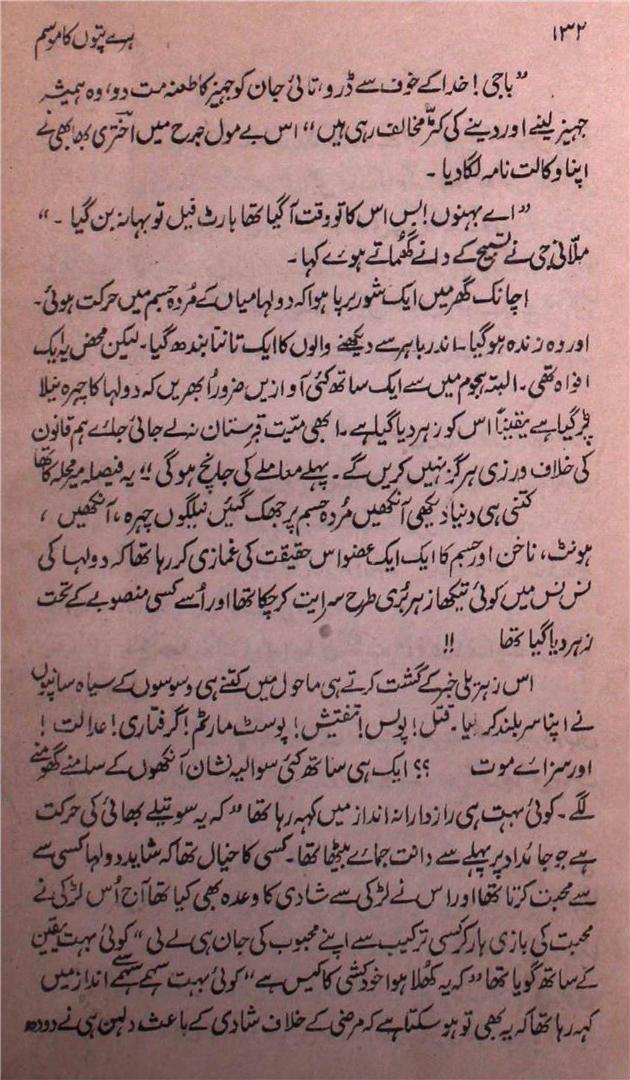 ۱۳۲ ہرے پتوں کا موسم
”باجی! خدا کے خوف سے ڈرو، تائی جان کو جہیز کا طعنہ مت دو، وہ ہمیشہ
جہیز لینے اور دینے کی کٹر مخالف رہی ہیں“ اس بے مول جرح میں اختری بھابھی نے
اپنا وکالت نامہ لگا دیا۔
”اے بہنوں! بس اس کا تو وقت آ گیا تھا ہارٹ فیل تو بہانہ بن گیا۔“
ملّانی جی نے تسبیح کے دانے گھُماتے ہوئے کہا۔
اچانک گھر میں ایک شور برپا ہوا کہ دولہا میاں کے مُردہ جسم میں حرکت ہوئی۔
اور وہ زندہ ہو گیا۔ اندر باہر سے دیکھنے والوں کا ایک تانتا بندھ گیا۔ لیکن محض یہ ایک
افواہ تھی۔ البتہ ہجوم میں سے ایک ساتھ کئی آوازیں ضرور اُبھریں کہ دولہا کا چہرہ نیلا
پڑ گیا ہے یقیناً اس کو زہر دیا گیا ہے۔ ابھی میّت قبرستان نہ لے جائی جائے ہم قانون
کی خلاف ورزی ہرگز نہیں کریں گے۔ پہلے معاملے کی جانچ ہو گی!! یہ فیصلہ میر محلہ کا تھا
کتنی ہی دنیا دیکھی آنکھیں مُردہ جسم پر جھک گئیں نیلگوں چہرہ، آنکھیں،
ہونٹ، ناخن اور جسم کا ایک ایک عضو اس حقیقت کی غمازی کر رہا تھا کہ دولہا کی
نس نس میں کوئی تیکھا زہر بُری طرح سرایت کر چکا تھا اور اُسے کسی منصوبے کے تحت
زہر دیا گیا تھا !!
اس زہریلی خبر کے گشت کرتے ہی ماحول میں کتنے ہی وسوسوں کے سیاہ سانپوں
نے اپنا سر بلند کر لیا۔ قتل! پولس! تفتیش! پوسٹ مارٹم! گرفتاری! عدالت!
اور سزائے موت ؟؟ ایک ہی ساتھ کئی سوالیہ نشان آنکھوں کے سامنے گھومنے
لگے۔ کوئی بہت ہی رازدارانہ انداز میں کہہ رہا تھا ”کہ یہ سوتیلے بھائی کی حرکت
ہے جو جائداد پر پہلے سے دانت جمائے بیٹھا تھا۔ کسی کا خیال تھا کہ شاید دولہا کسی سے
سے محبت کرتا تھا اور اس نے لڑکی سے شادی کا وعدہ بھی کیا تھا آج اُس لڑکی نے
محبت کی بازی ہار کر کسی ترکیب سے اپنے محبوب کی جان ہی لے لی“ کوئی بہت یقین
کے ساتھ گویا تھا ”کہ یہ کھُلا ہوا خودکشی کا کیس ہے“ کوئی بہت سہمے سہمے انداز میں
کہہ رہا تھا کہ یہ بھی تو ہو سکتا ہے کہ مرضی کے خلاف شادی کے باعث دلہن ہی نے دودھ